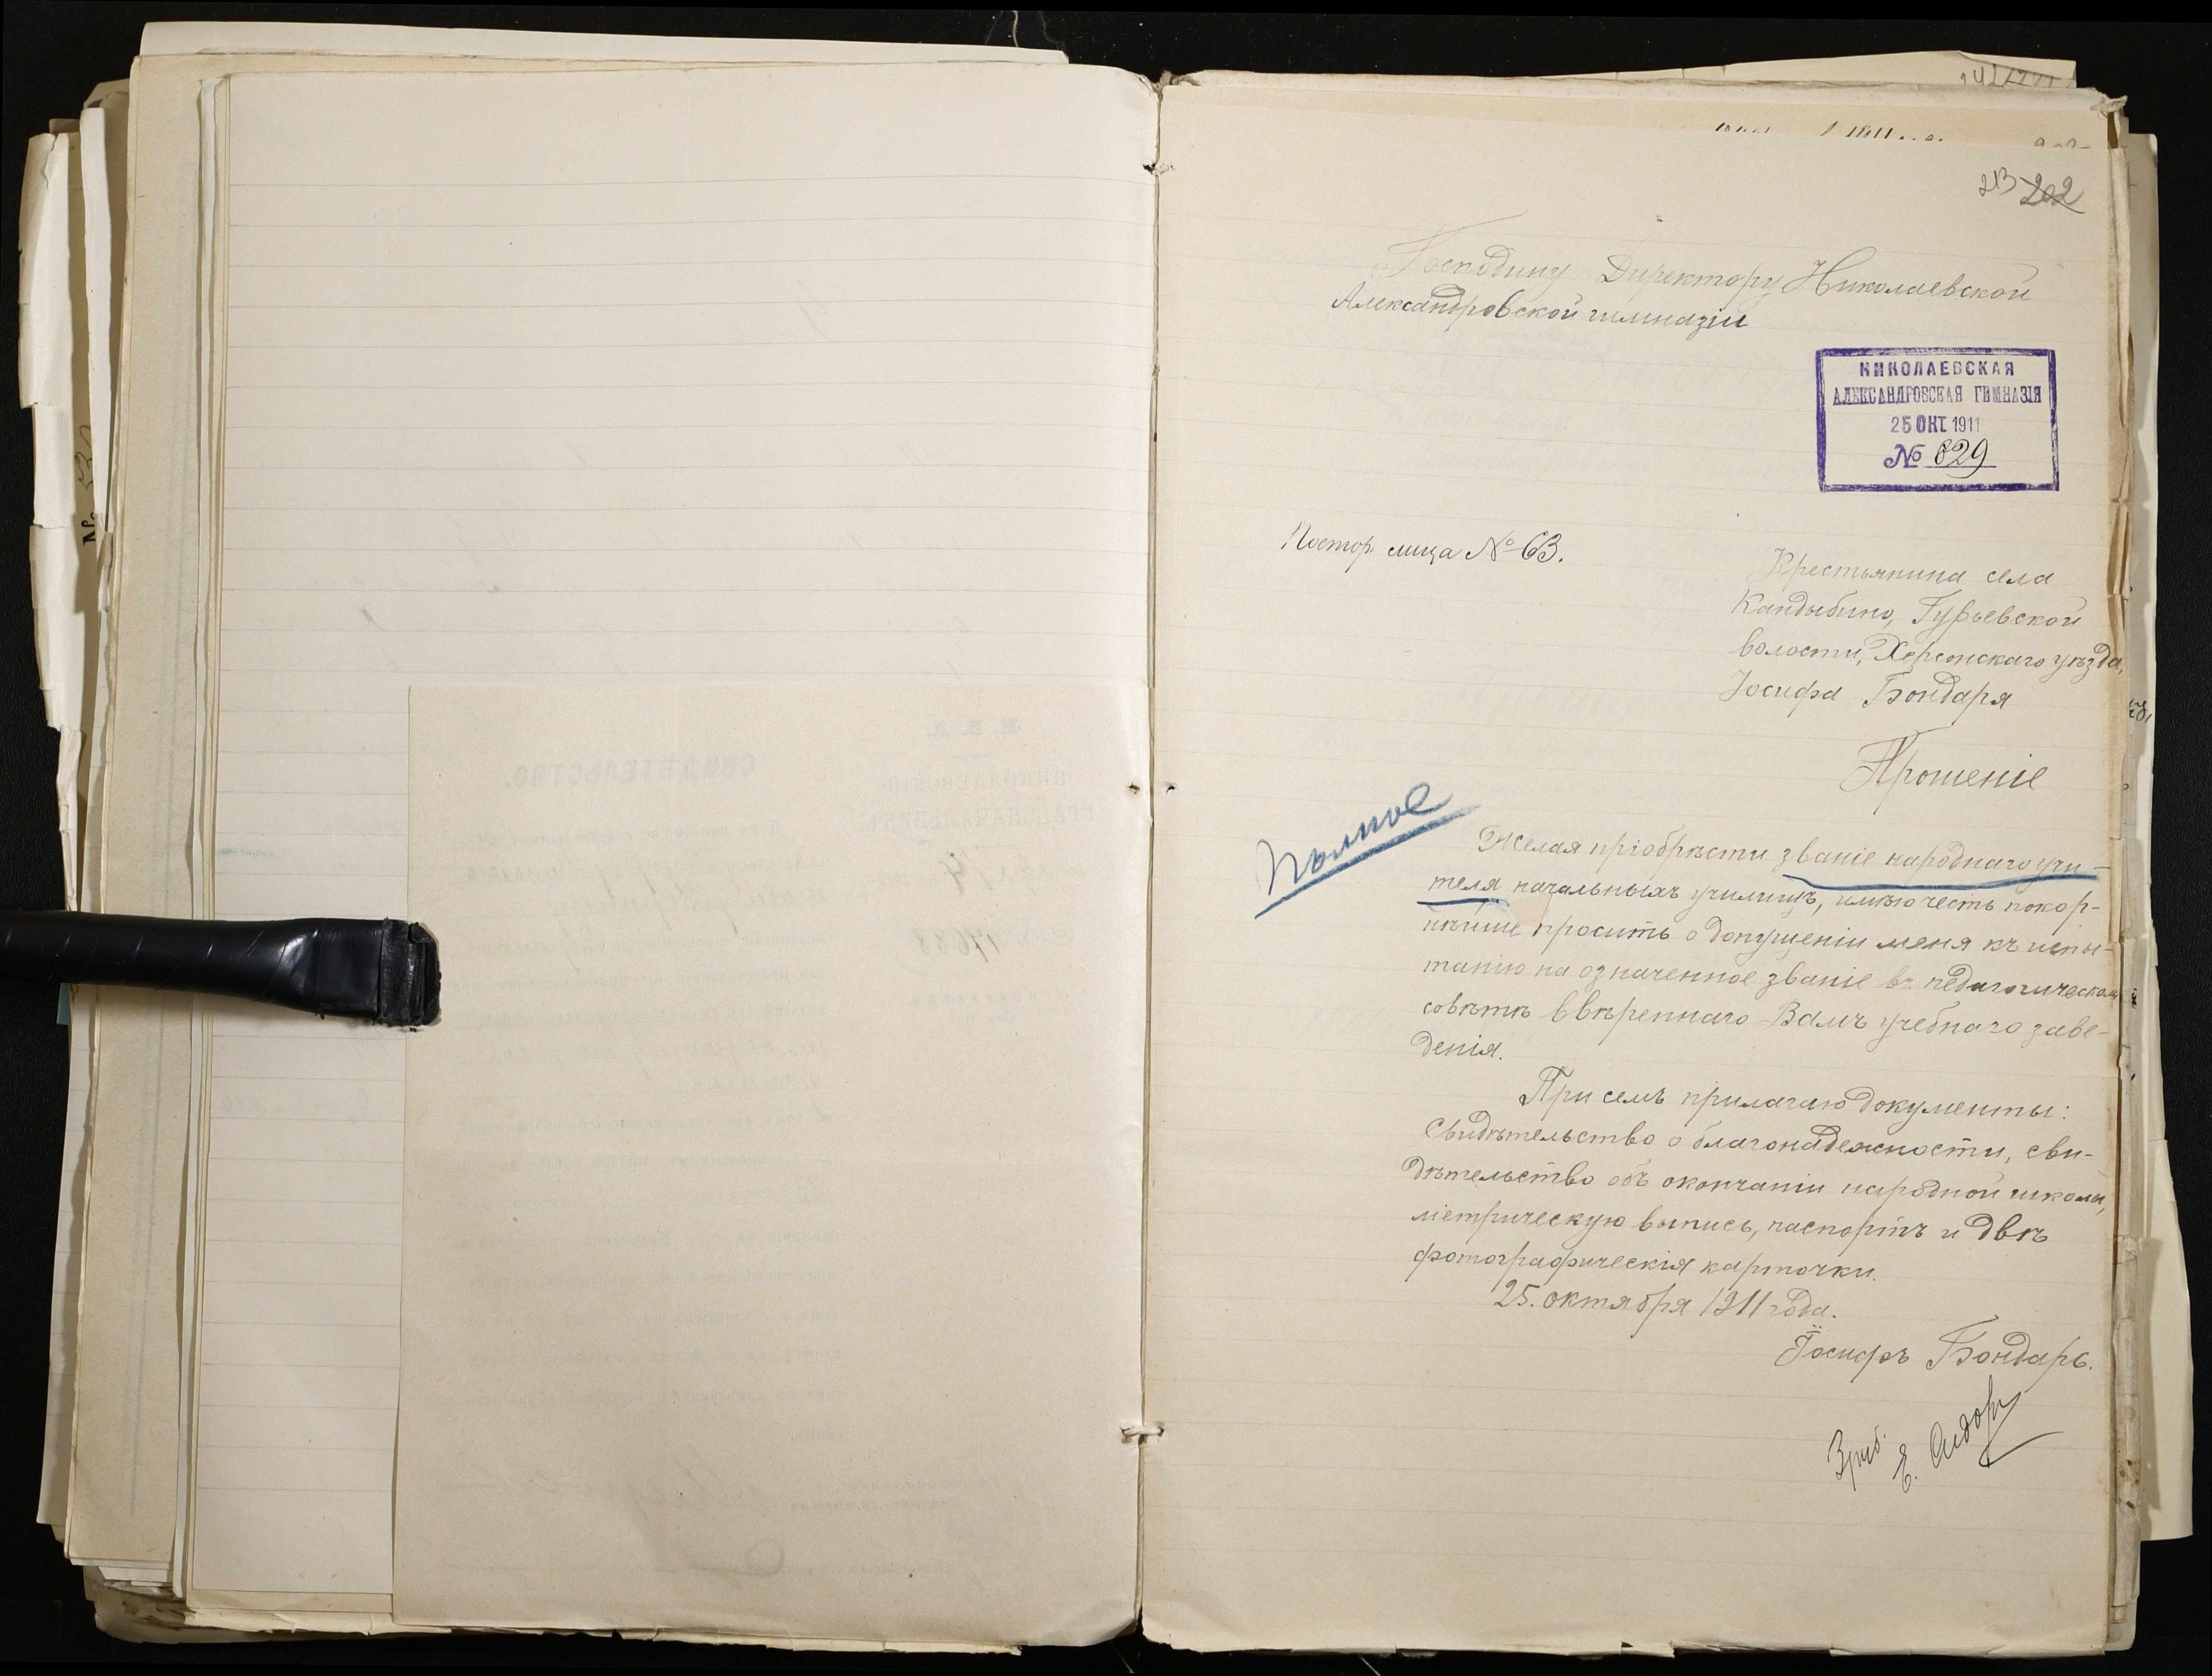 213 202
Господину Директору Николаевской
Александровской гимназіи
НИКОЛАЕВСКАЯ
АЛЕКСАНДРОВСКАЯ ГИМНАЗІЯ
25 ОКТ. 1911
№ 829
Постор лица № 63.
Крестьянина села
Кандыбино, Гурьевской
волости, Херсонскаго уѣзда,
Іосифа Бондаря
Прошеніе
Полное
Желая пріобрѣсти званіе народнаго учи-
теля начальныхъ училищъ, имѣю честь покор-
нѣйше просить о допущеніи меня къ испы-
танію на означенное званіе въ педагогическом
совѣтѣ ввѣреннаго Вамъ учебнаго заве-
денія.
При семъ прилагаю документы:
Свидѣтельство о благонадежности, сви-
дѣтельство объ окончаніи народной школы,
метрическую выпись, паспортъ и двѣ
фотографическія карточки.
25. октября 1911 года.
Іосифъ Бондарь.